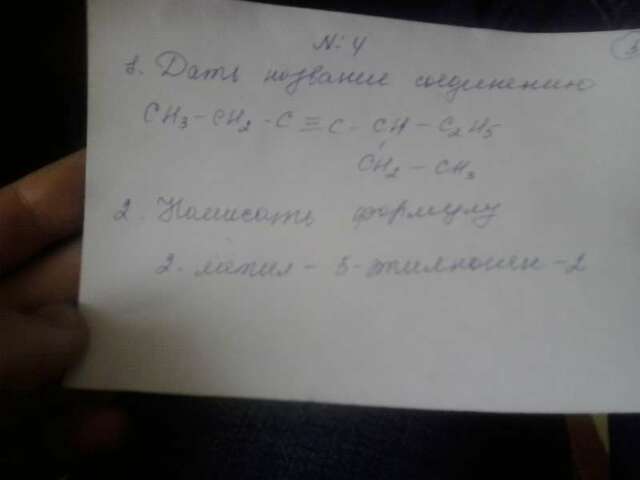 № 4
1. Дать название соединению
CH3 - CH2 - C ≡ C - CH - C2H5
CH2 - CH3
2. Написать формулу
2-метил - 5-этилнонен - 2